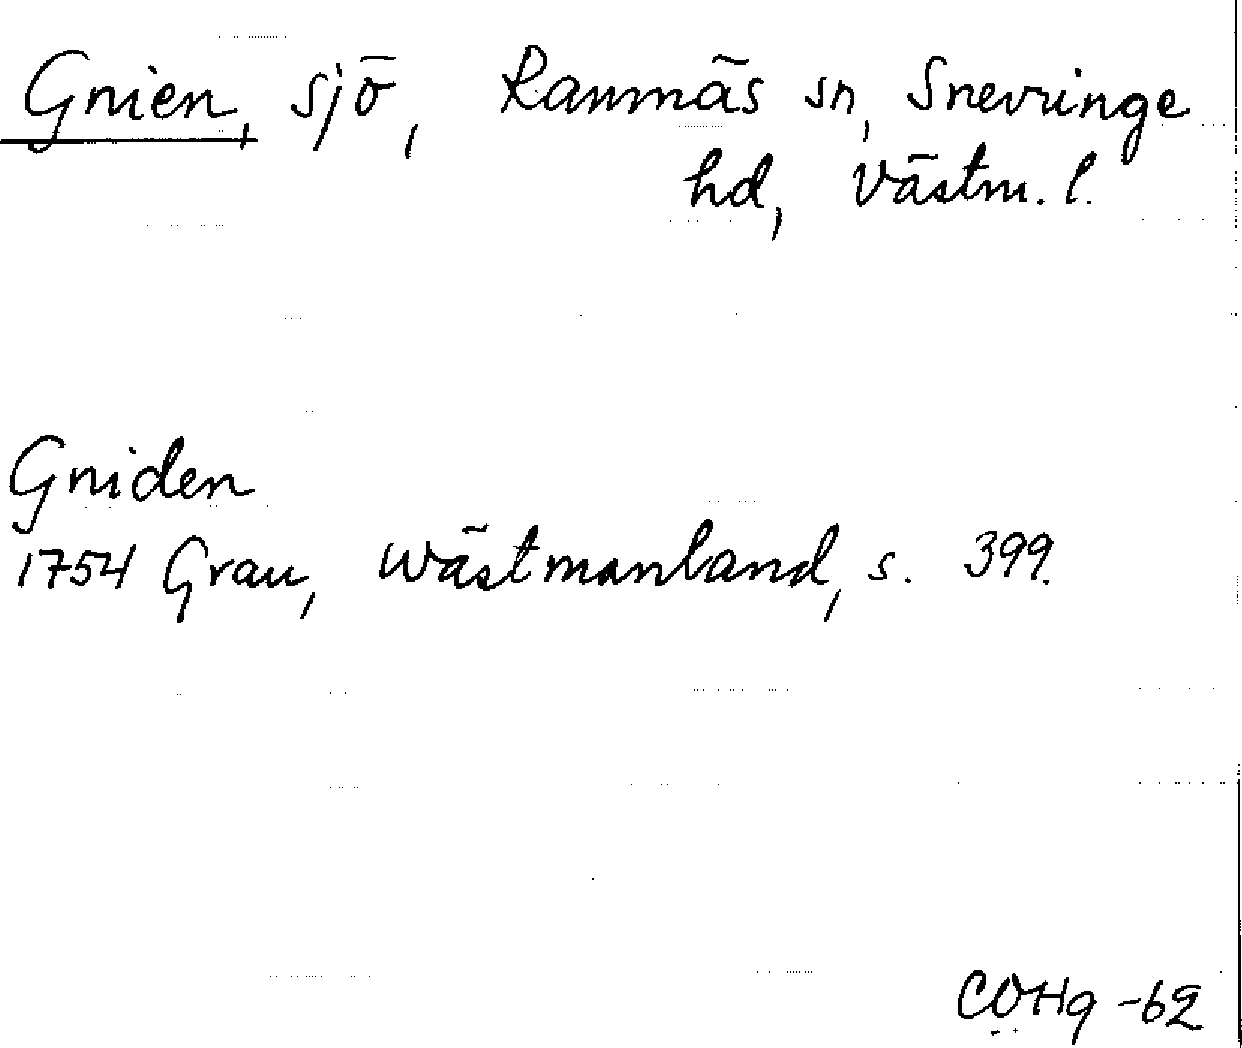 Gnien, sjö, Ramnäs sn, Snevringe
hd, Västm. l.
Gniden
1754 Grau, Wästmanland, s. 399.
COHg -62